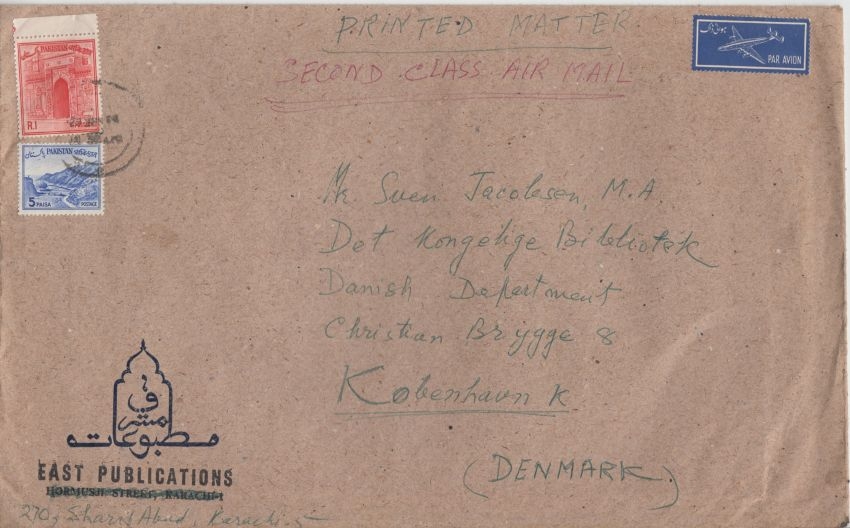 PRINTED MATTER
SECOND CLASS AIR MAIL
PAKISTAN
R.1
PAKISTAN
5 PAISA POSTAGE
PAR AVION
Mr Sven Jacobsen, M.A.
Det Kongelige Bibliotek
Danish Department
Christian Brygge 8
København K
(DENMARK)
مطبوعات مشرق
EAST PUBLICATIONS
HORMUSJI STREET, KARACHI-1
270, Sharif Abad, Karachi-5